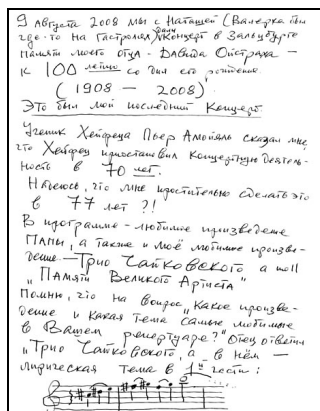 9 Августа 2008 мы с Наташей (Валерка был
где-то на гастролях) дали концерт в Зальцбурге
памяти моего отца – Давида Ойстраха –
к 100 летию со дня его рождения.
(1908 – 2008)
Это был мой последний концерт.
Ученик Хейфеца Пьер Амойяль сказал мне,
что Хейфец приостановил концертную деятель-
ность в 70 лет.
Надеюсь, что мне простительно сделать это
в 77 лет?!
В программе – любимое произведение
Папы, а также и моё любимое произве-
дение – Трио Чайковского a moll
"Памяти Великого Артиста"
Помню, что на вопрос "Какое произве-
дение и какая тема самые любимые
в Вашем репертуаре?" Отец ответил
"Трио Чайковского, а в нём –
лирическая тема в 1й части: